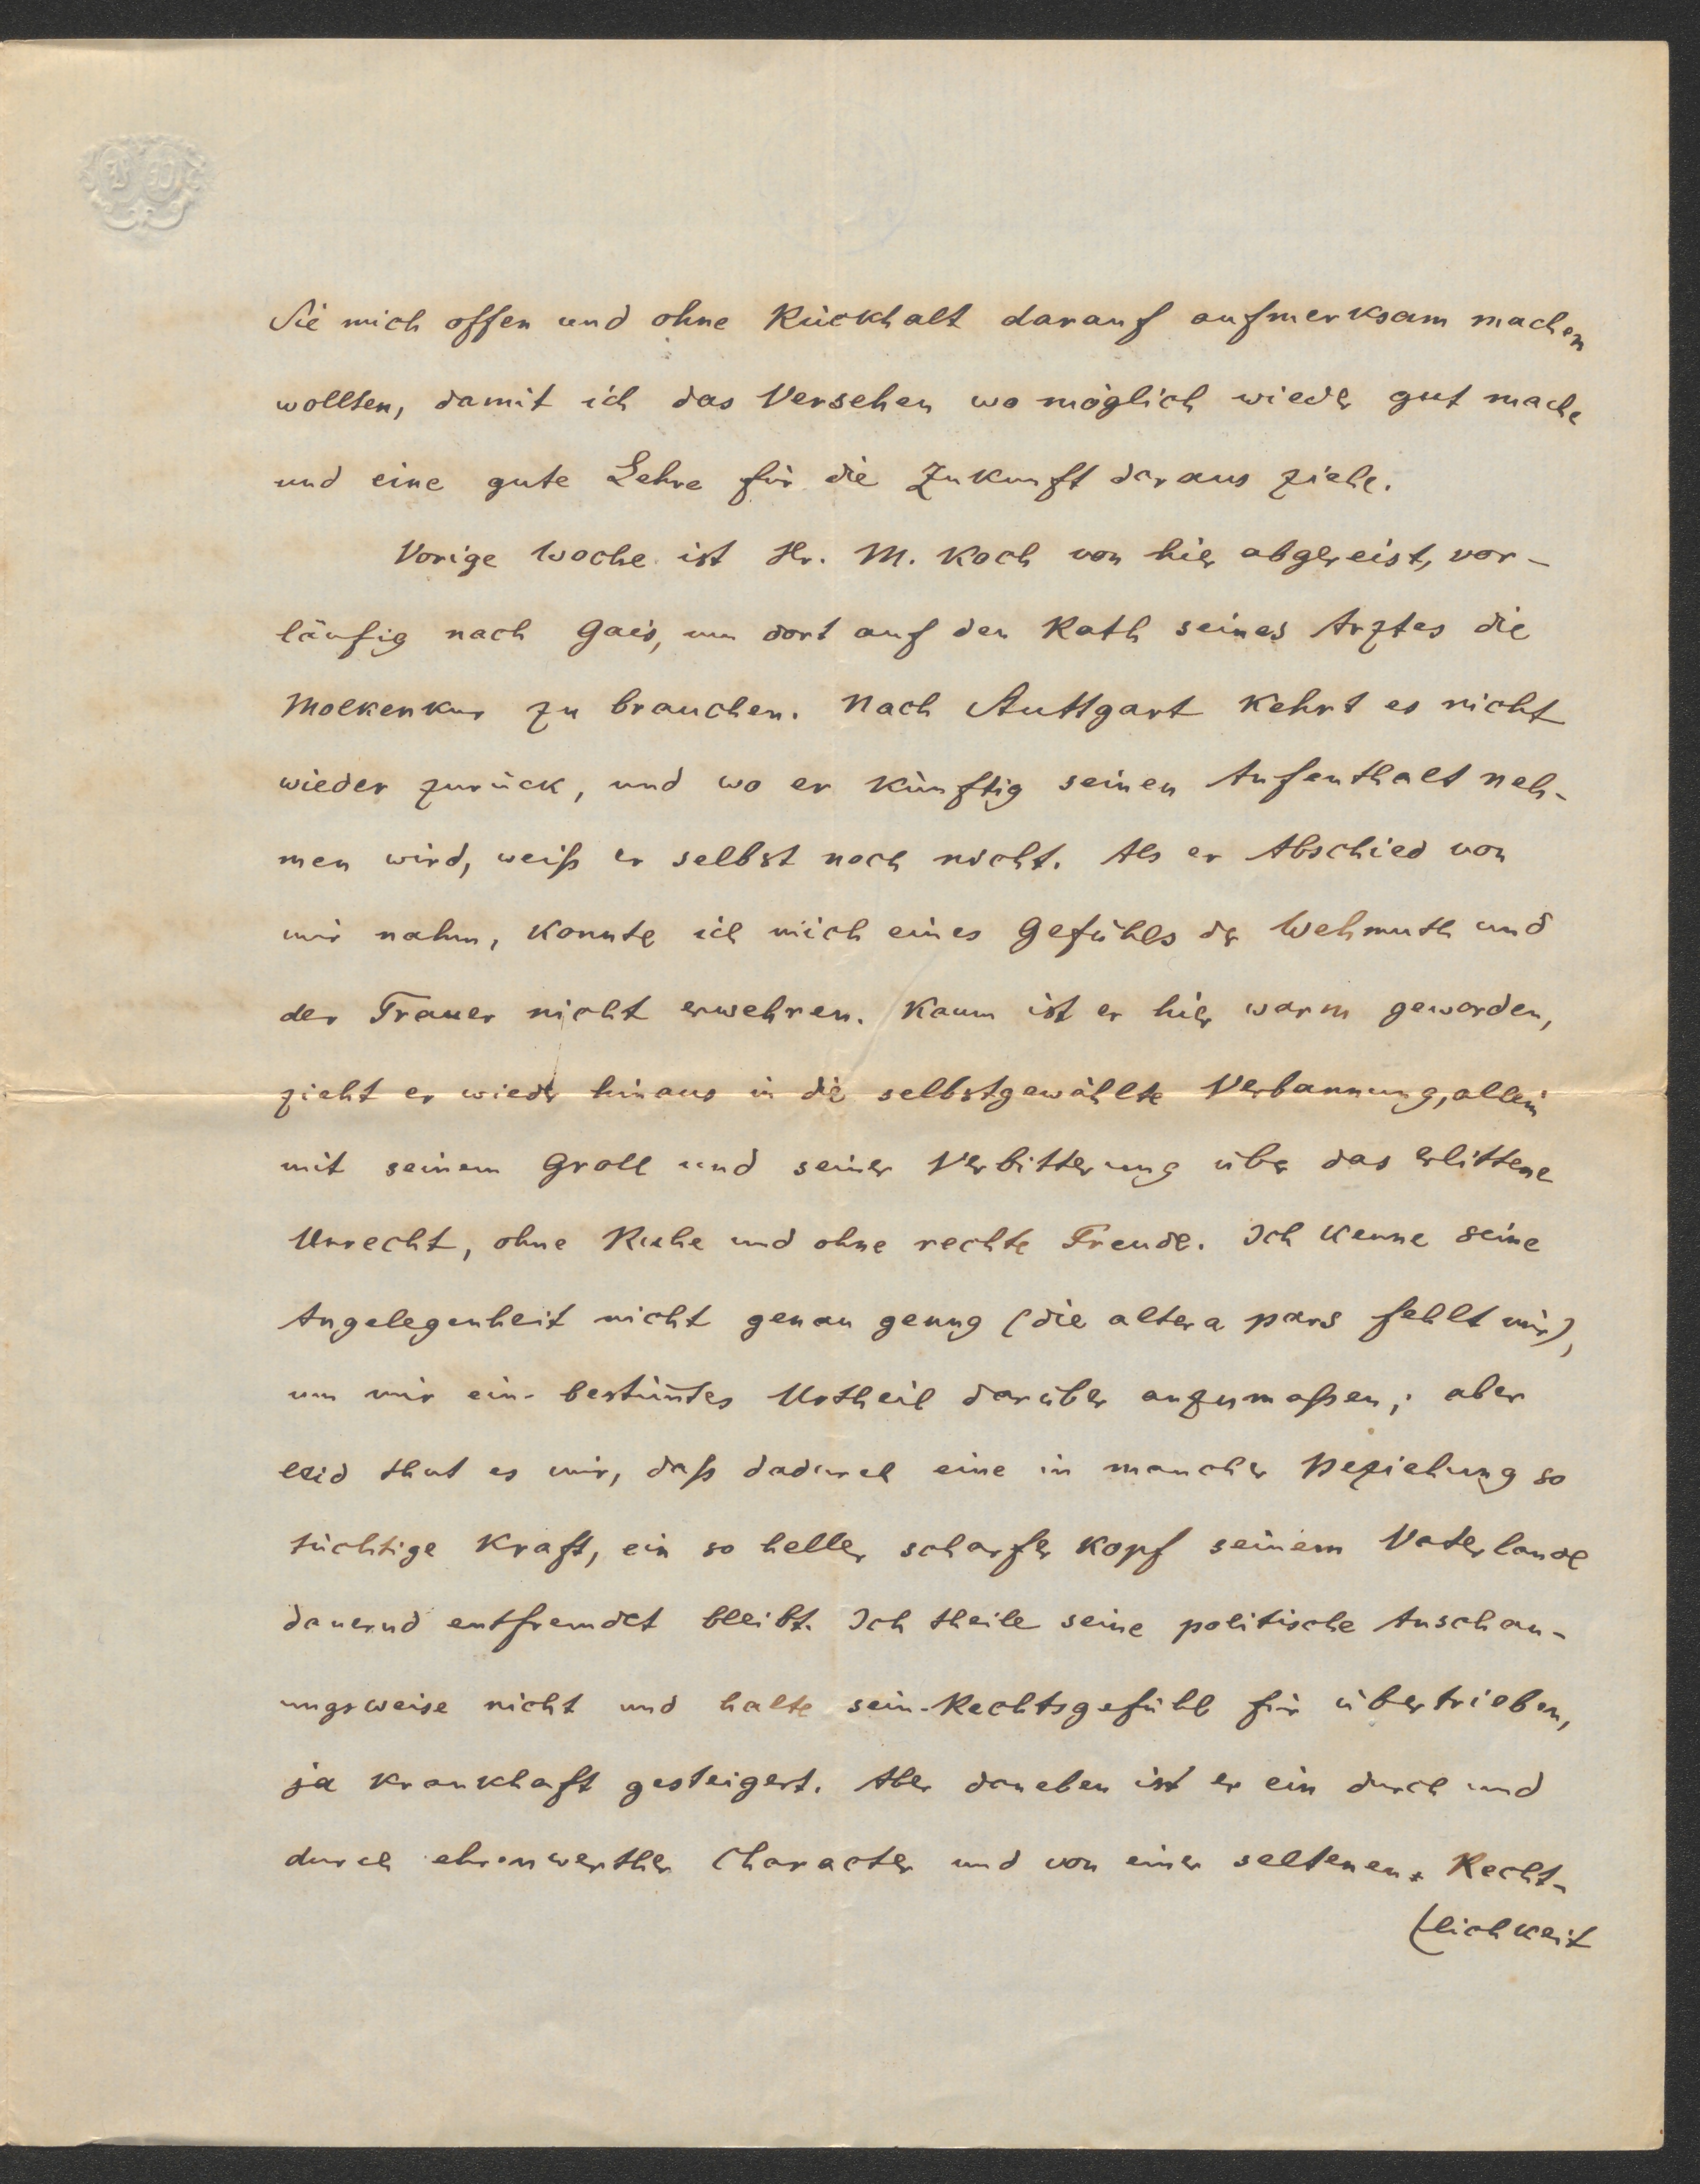 Sie mich offen und ohne Rückhalt darauf aufmerksam machen
wollten, damit ich das Versehen wo möglich wieder gut mache
und eine gute Lehre für die Zukunft daraus ziehe.
Vorige Woche ist Hr. M. Koch von hier abgereist, vor-
läufig nach Gais, um dort auf den Rath seines Arztes die
Molkenkur zu brauchen. Nach Stuttgart kehrt er nicht
wieder zurück, und wo er künftig seinen Aufenthalt neh-
men wird, weiß er selbst noch nicht. Als er Abschied von
mir nahm, konnte ich mich eines Gefühls der Wehmuth und
der Trauer nicht erwehren. Kaum ist er hier warm geworden,
zieht er wieder hinaus in die selbstgewählte Verbannung, allein
mit seinem Groll und seiner Verbitterung über das erlittene
Unrecht, ohne Ruhe und ohne rechte Freude. Ich kenne seine
Angelegenheit nicht genau genug (die altera pars fehlt mir),
um mir ein bestim̅tes Urtheil darüber anzumaßen; aber
leid thut es mir, daß dadurch eine in mancher Beziehung so
tüchtige Kraft, ein so heller scharfer Kopf seinem Vaterlande
dauernd entfremdet bleibt. Ich theile seine politische Anschau-
ungsweise nicht und halte sein Rechtsgefühl für übertrieben,
ja krankhaft gesteigert. Aber daneben ist er ein durch und
durch ehrenwerther Character und von einer seltenen Recht-
(lichkeit